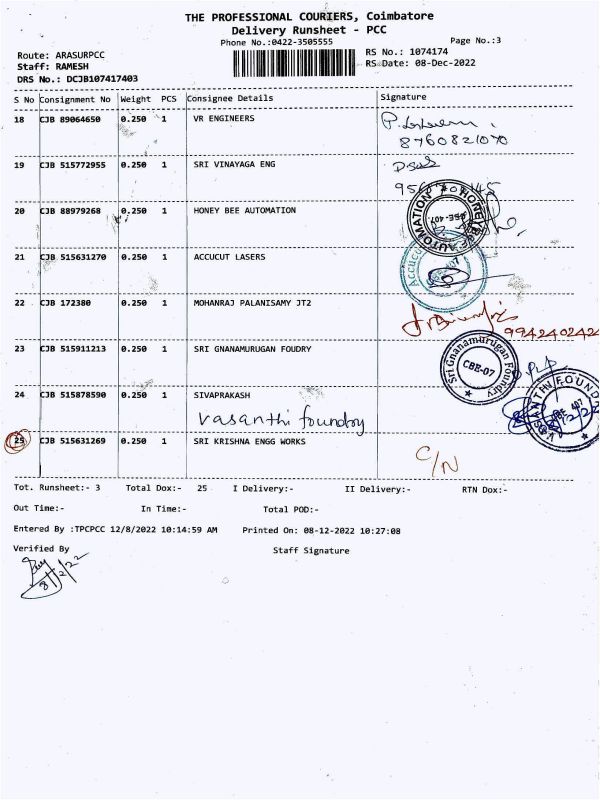 THE PROFESSIONAL COURIERS, Coimbatore
Delivery Runsheet - PCC
Phone No.:0422-3505555
Page No.:3
Route: ARASURPCC
RS No.: 1074174
Staff: RAMESH
RS Date: 08-Dec-2022
DRS No.: DCJB107417403
S No Consignment No Weight PCS Consignee Details Signature
18 CJB 89064650 0.250 1 VR ENGINEERS
8760821070
19 CJB 515772955 0.250 1 SRI VINAYAGA ENG
20 CJB 88979268 0.250 1 HONEY BEE AUTOMATION
HONEYBEE AUTOMATION
CBE-407
21 CJB 515631270 0.250 1 ACCUCUT LASERS
Accucut
22 CJB 172380 0.250 1 MOHANRAJ PALANISAMY JT2
994240242
23 CJB 515911213 0.250 1 SRI GNANAMURUGAN FOUDRY
Sri Gnanamurugan Foundry
CBE-07
24 CJB 515878590 0.250 1 SIVAPRAKASH
Vasanthi foundry
VASANTHI FOUND
25 CJB 515631269 0.250 1 SRI KRISHNA ENGG WORKS
C/N
Tot. Runsheet:- 3 Total Dox:- 25 I Delivery:- II Delivery:- RTN Dox:-
Out Time:- In Time:- Total POD:-
Entered By :TPCPCC 12/8/2022 10:14:59 AM Printed On: 08-12-2022 10:27:08
Verified By Staff Signature
8/12/22